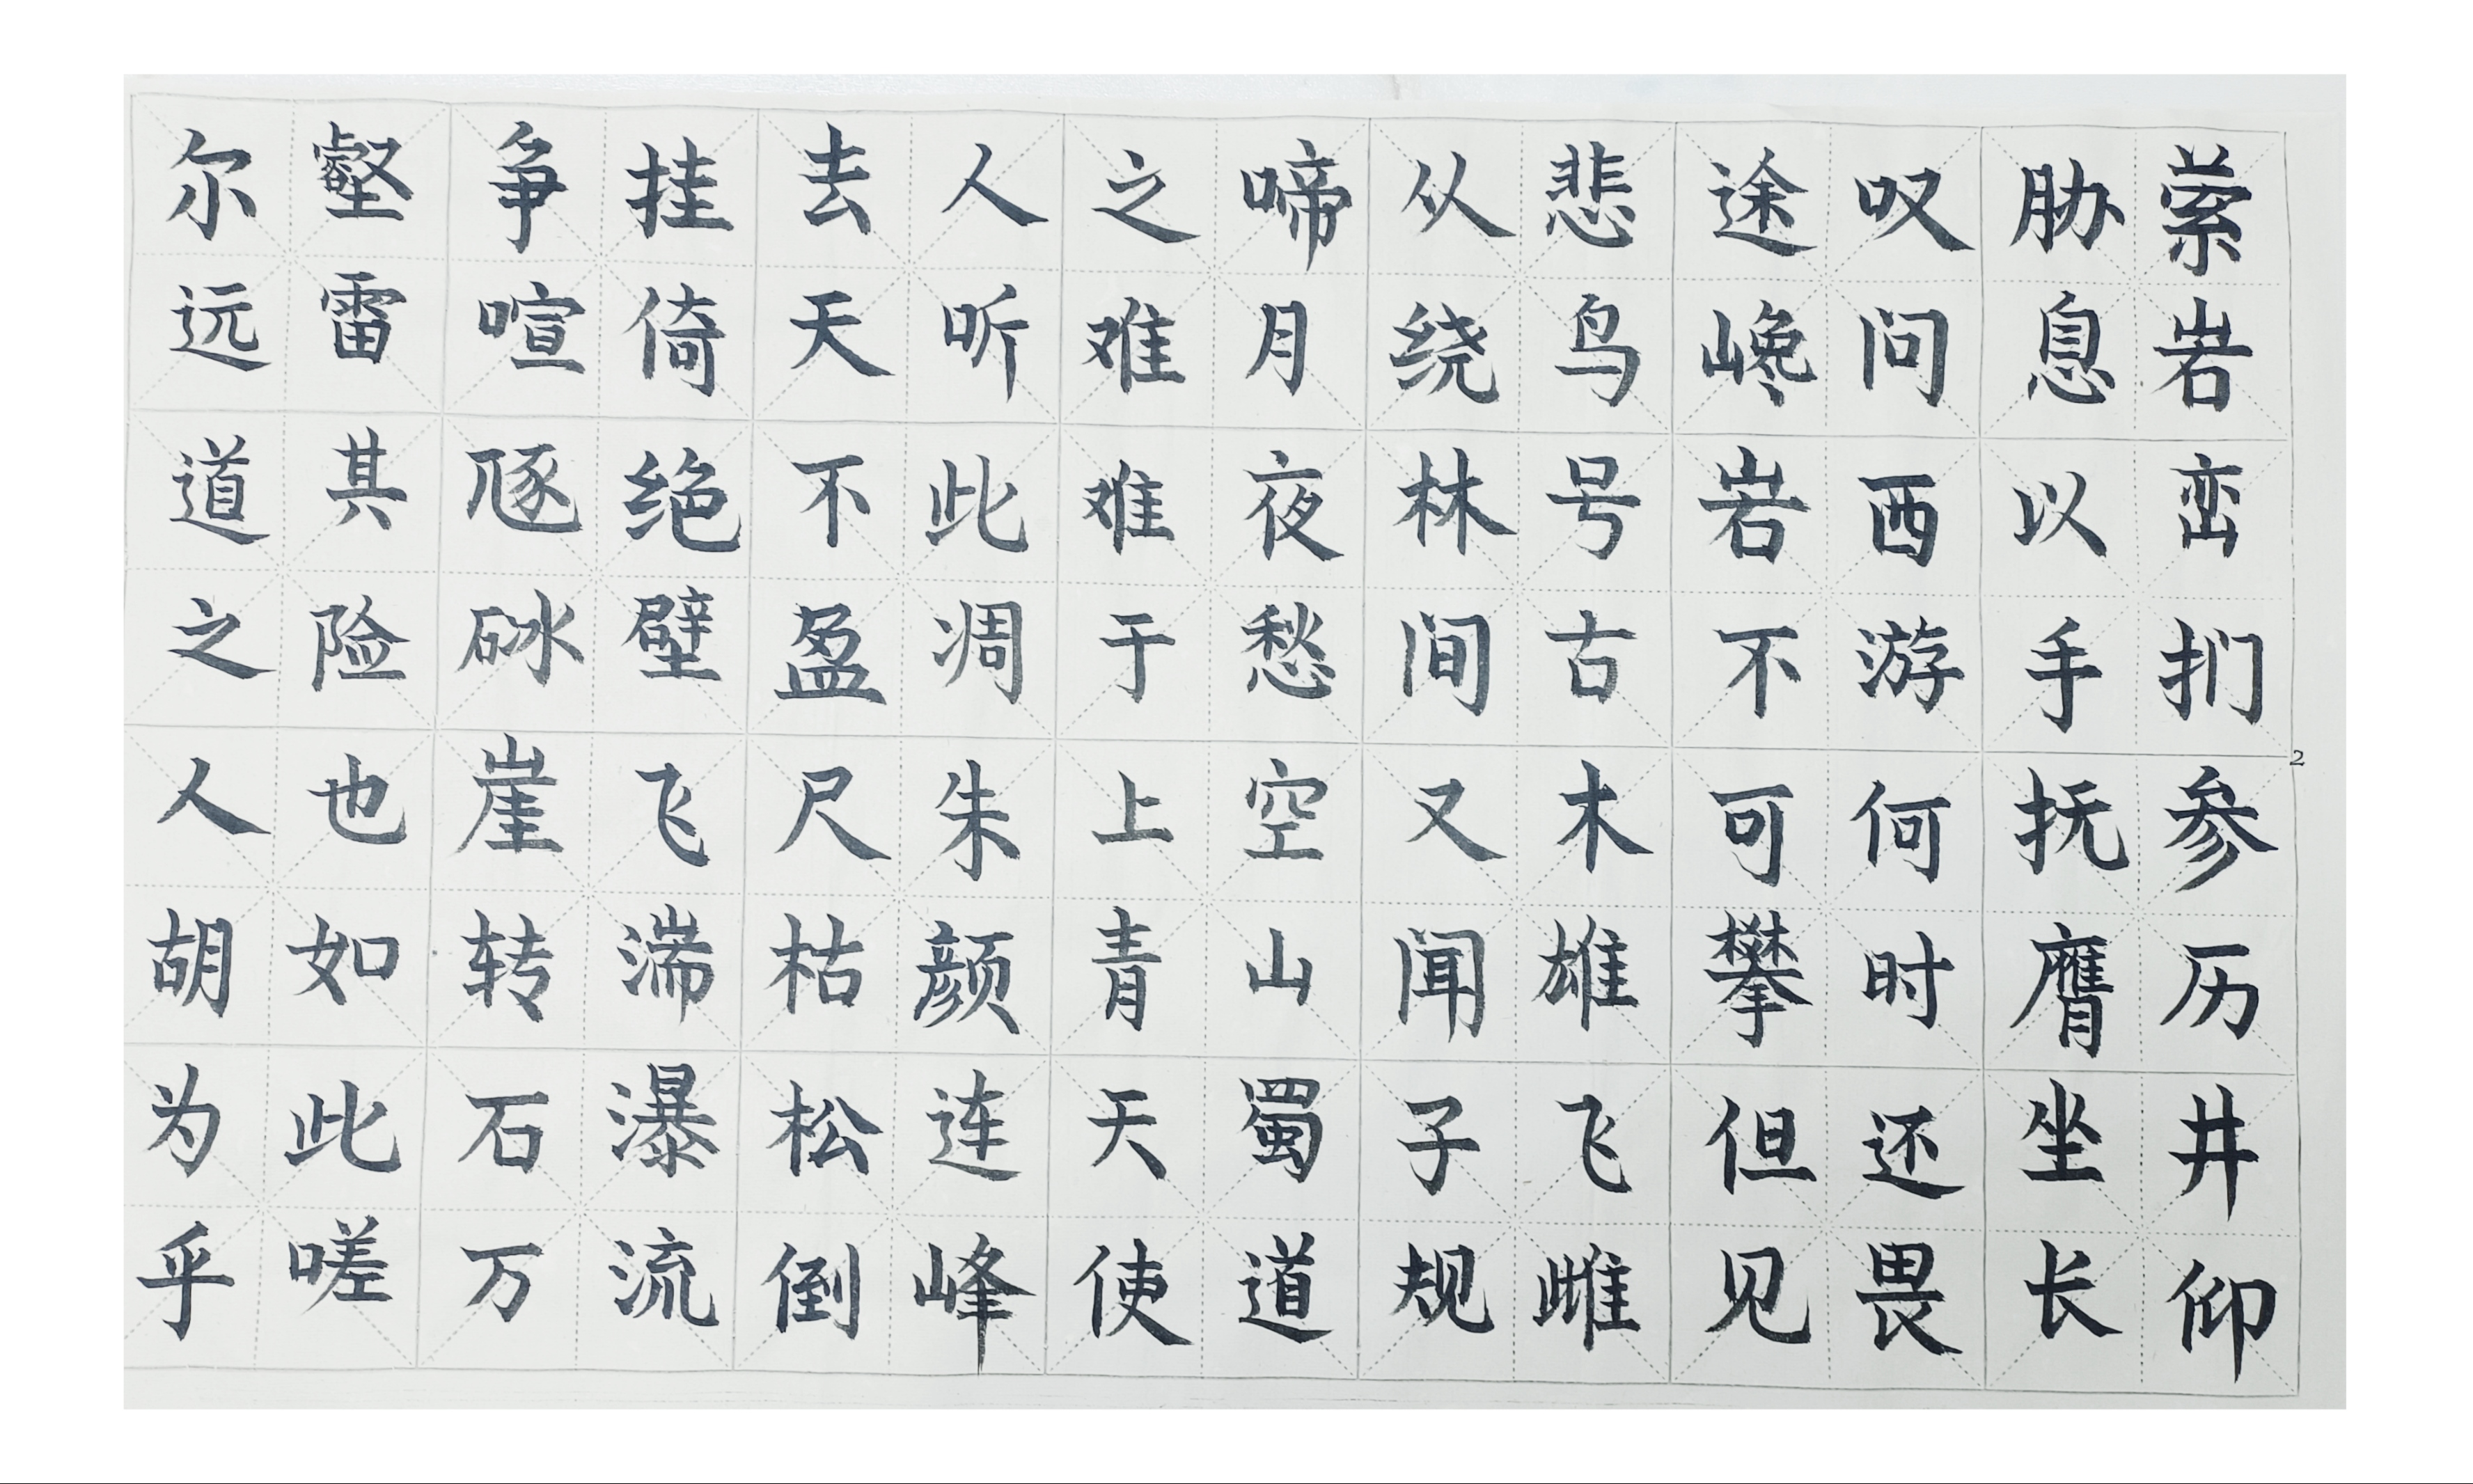 萦岩峦扪参历井仰
胁息以手抚膺坐长
叹问西游何时还畏
途巉岩不可攀但见
悲鸟号古木雄飞雌
从绕林间又闻子规
啼月夜愁空山蜀道
之难难于上青天使
人听此凋朱颜连峰
去天不盈尺枯松倒
挂倚绝壁飞湍瀑流
争喧豗砯崖转石万
壑雷其险也如此嗟
尔远道之人胡为乎
2